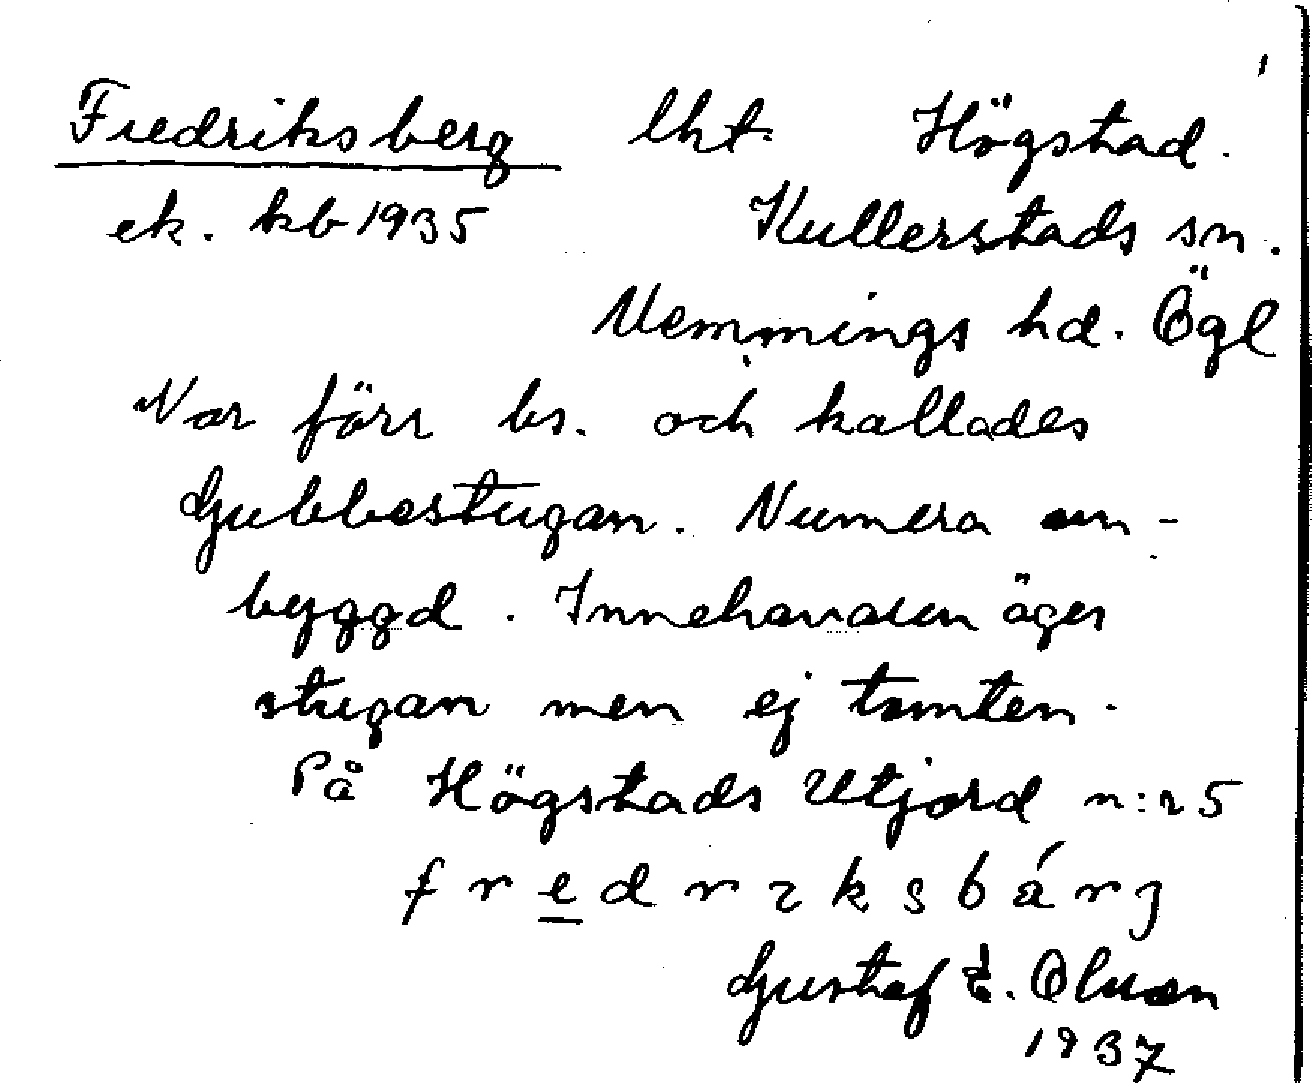 Fredriksberg lht. Högstad.
ek. kb 1935 Kullerstads sn.
Memmings hd. Ögl
Var förr bs. och kallades
Gubbestugan. Numera om-
byggd. Innehavaren äger
stugan men ej tomten.
På Högstads Utjord n:r 5
fredrɩksbárg
Gustaf E. Olsson
1937